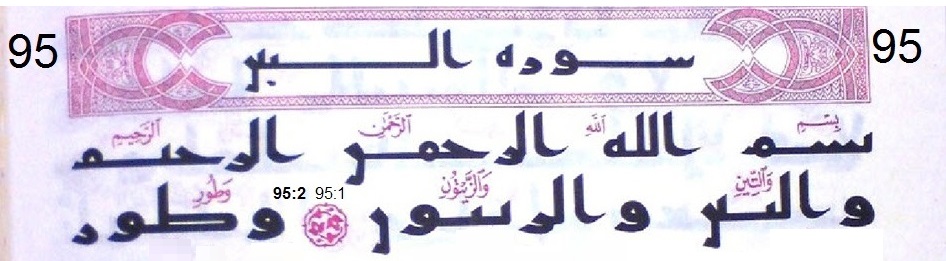 95 سوره التين 95
بِسْمِ ٱللَّهِ ٱلرَّحْمَٰنِ ٱلرَّحِيمِ
بسم الله الرحمن الرحيم
وَٱلتِّينِ وَٱلزَّيْتُونِ 95:1 95:2 وَطُورِ
والتين والزيتون وطور